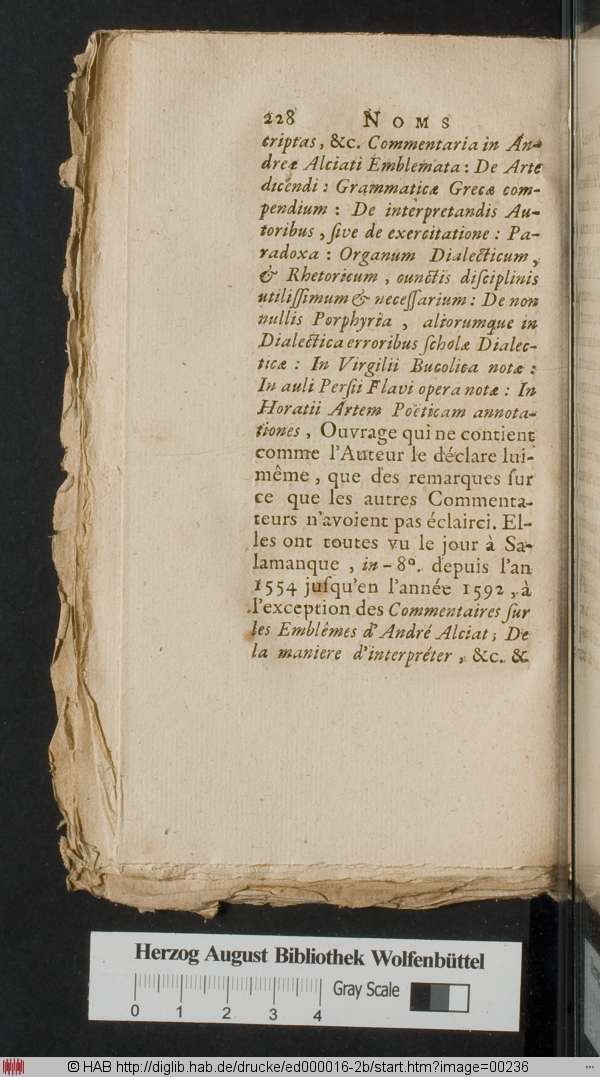 228 NOMS
criptas, &c. Commentaria in An-
dreæ Alciati Emblemata: De Arte
dicendi: Grammaticæ Grecæ com-
pendium: De interpretandis Au-
toribus, ſive de exercitatione: Pa-
radoxa: Organum Dialecticum,
& Rhetoricum, cunctis diſciplinis
utiliſſimum & neceſſarium: De non
nullis Porphyria, aliorumque in
Dialectica erroribus ſcholæ Dialec-
ticæ: In Virgilii Bucolica notæ:
In auli Perſii Flavi opera notæ: In
Horatii Artem Poëticam annota-
tiones, Ouvrage qui ne contient
comme l'Auteur le déclare lui-
même, que des remarques ſur
ce que les autres Commenta-
teurs n'avoient pas éclairci. El-
les ont toutes vu le jour à Sa-
lamanque, in-8°. depuis l'an
1554 juſqu'en l'année 1592, à
l'exception des Commentaires ſur
les Emblêmes d'André Alciat; De
la maniere d'interpréter, &c. &
Herzog August Bibliothek Wolfenbüttel
0 1 2 3 4 Gray Scale
© HAB http://diglib.hab.de/drucke/ed000016-2b/start.htm?image=00236